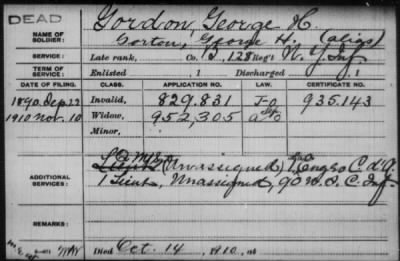 DEAD
NAME OF SOLDIER: Gordon, George H.
Gorton, George H. (alias)
SERVICE: Late rank, Co. B, 128 Reg't N. Y. Inf
TERM OF SERVICE: Enlisted , 1 Discharged , 1
DATE OF FILING. CLASS. APPLICATION NO. LAW. CERTIFICATE NO.
1890 Sep. 22 Invalid, 829.831 935.143
1910 Nov. 10 Widow, 952,305
Minor,
ADDITIONAL SERVICES: (Unassigned, Corps C. d'A.
1 Lieut, Unassigned, 90 U. S. C. Inf.
REMARKS:
Died Oct. 14, 1910, at